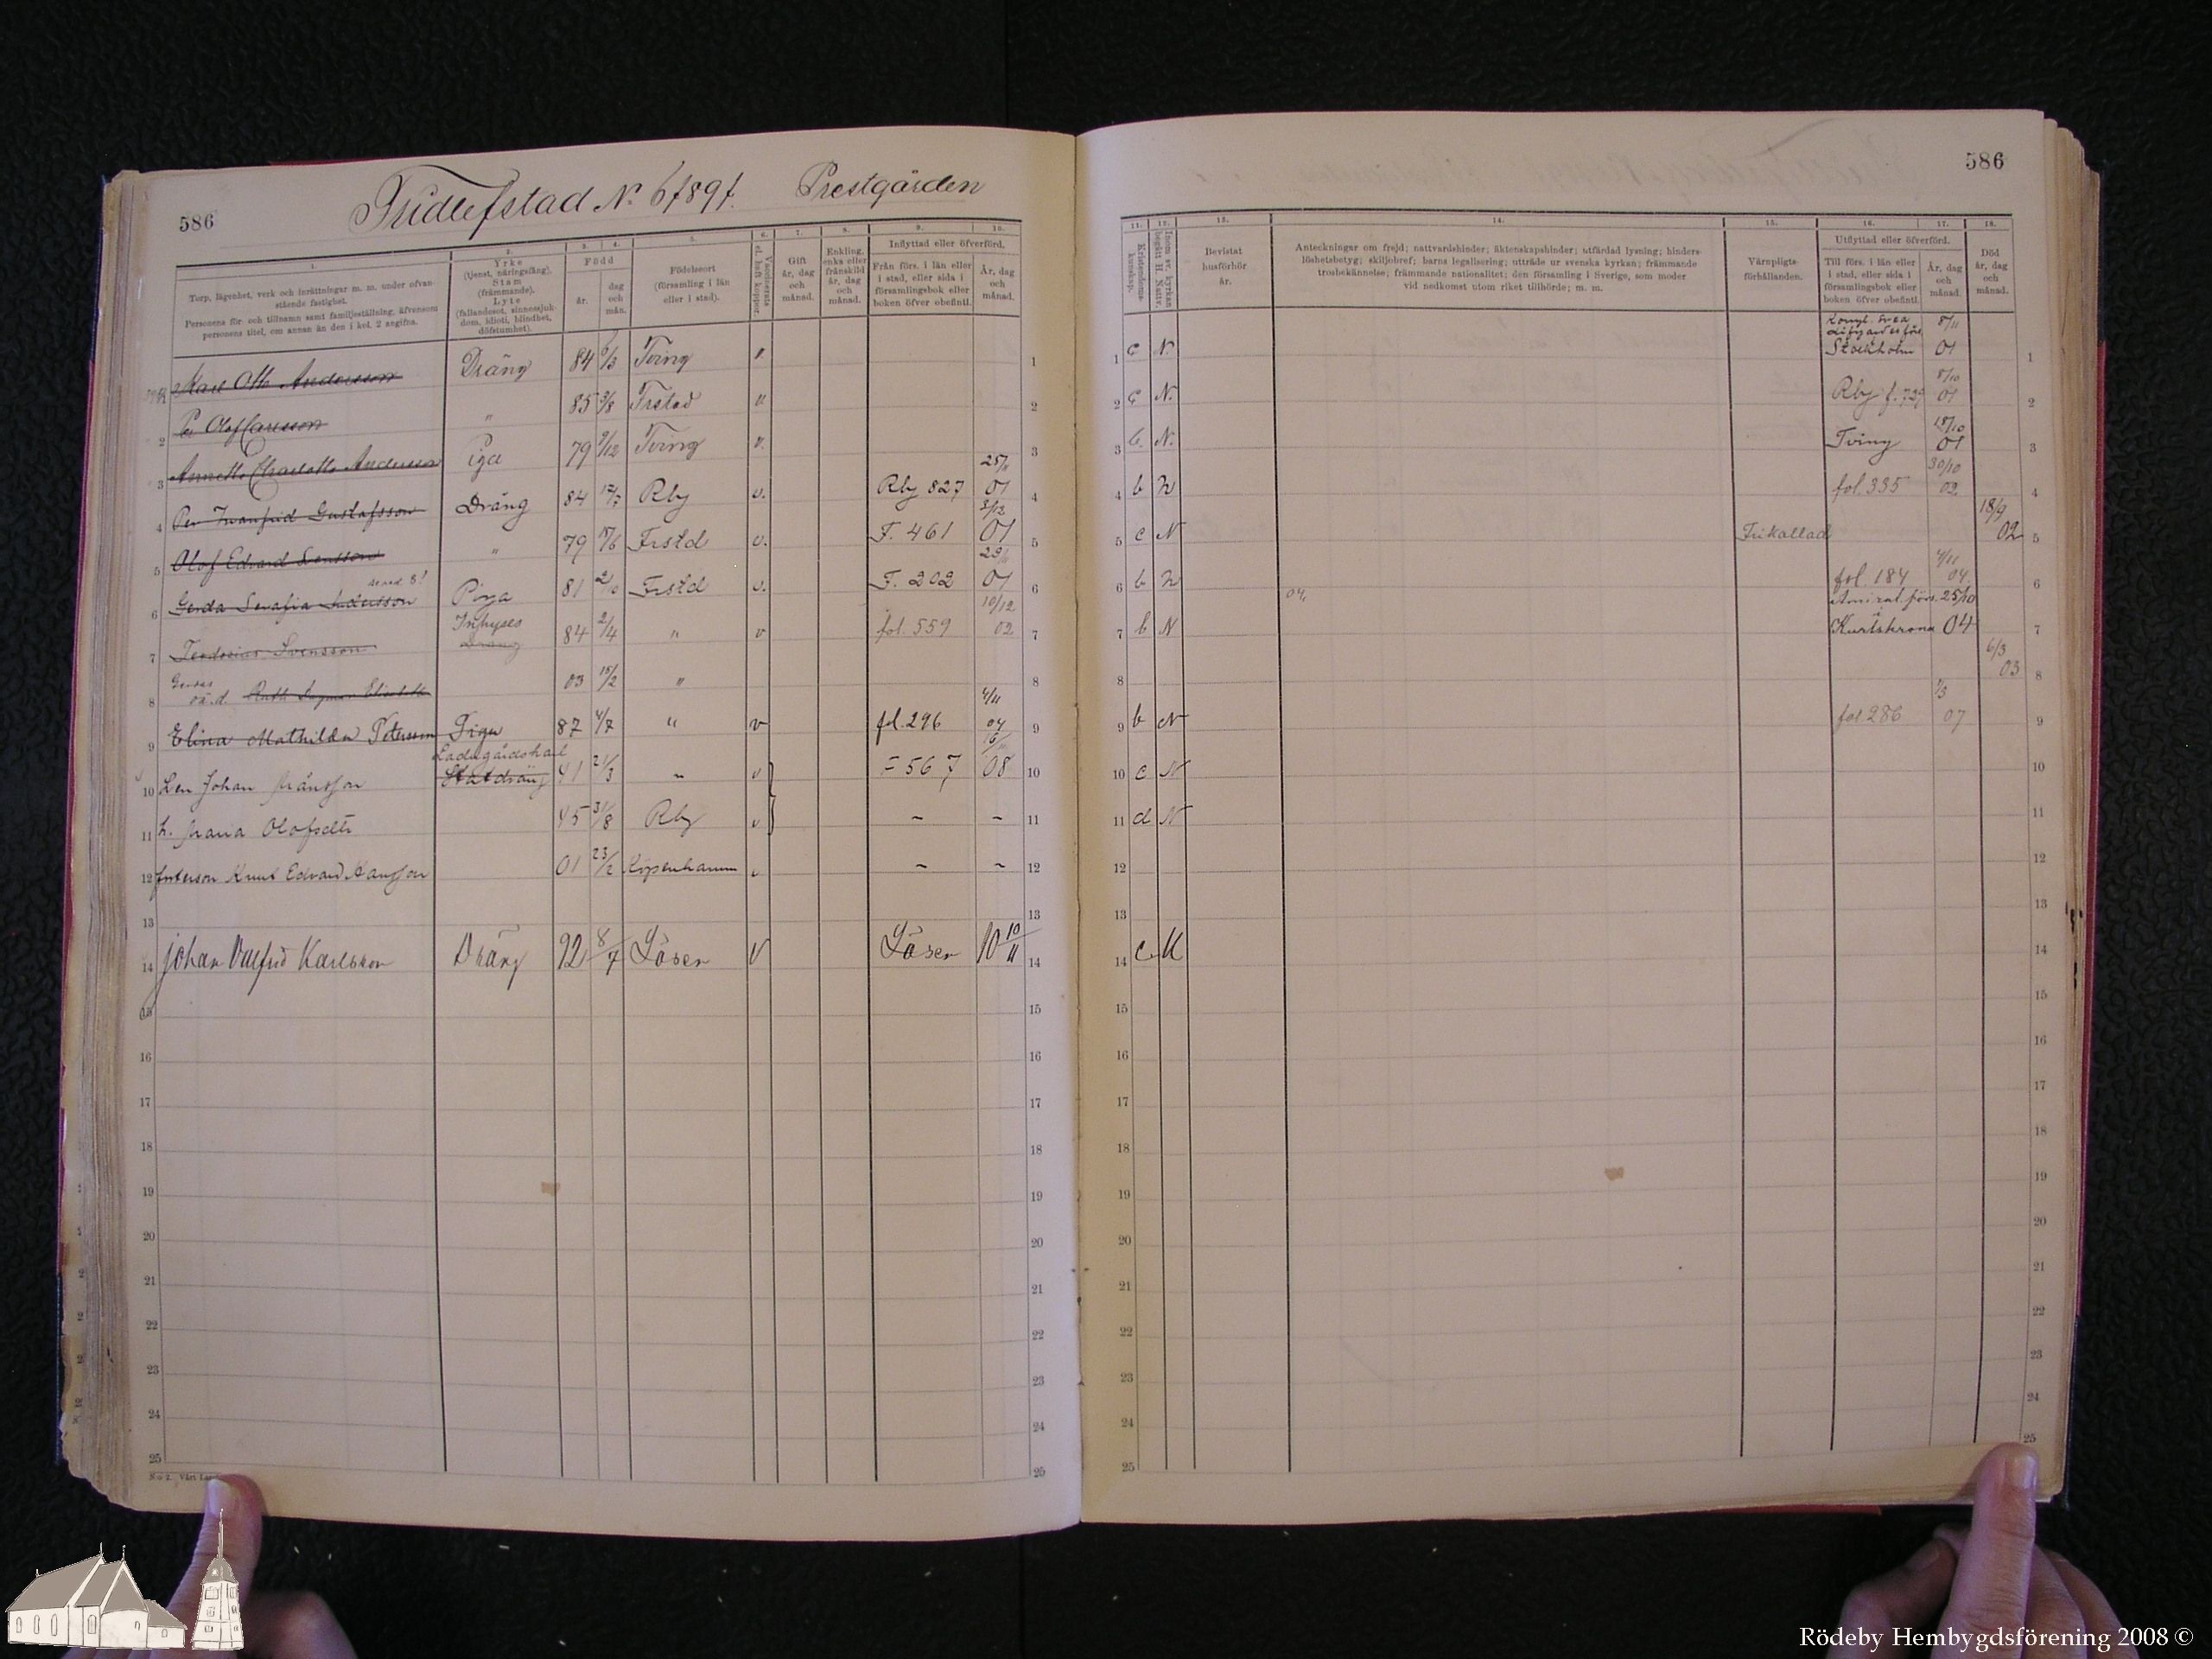 586
Fridlefstad No 67891. Prestgården
1.
2.
3.
4.
5.
6.
7.
8.
9.
10.
Torp, lägenhet, verk och inrättningar m. m. under ofvanstående fastighet.
Personens för- och tillnamn samt familjeställning, äfvensom personens titel, om annan än den i kol. 2 angifna.
Yrke
(tjenst, näringsfång).
Stam
(främmande).
Lyte
(fallandesot, sinnessjukdom, idioti, blindhet, döfstumhet).
Född
år.
dag och mån.
Födelseort
(församling i län eller i stad).
Vaccinerats el. haft koppor.
Gift
år, dag och månad.
Enkling, enka eller frånskild
år, dag och månad.
Inflyttad eller öfverförd.
Från förs. i län eller i stad, eller sida i församlingsbok eller boken öfver obefintl.
År, dag och månad.
Karl Otto Andersson Dräng 84 Tving v. 1
2 Per Olof Carlsson " 85 3/8 Frstad v. 2
3 Annette Charlotta Andersson Piga 79 9/12 Tving v. 3
4 Per Manfrid Gustafsson Dräng 84 12/7 Rby v. Rby 827 25/11 01 4
5 Olof Edvard Svensson " 79 Frstd v. F. 461 3/12 01 5
6 Gerda Serafia Andersson Piga 81 2/10 Frstd v. F. 202 01 6
7 Teodosius Svensson Inhyses Dräng 84 2/4 " v fol. 559 10/12 02 7
8 Gerdas oä. d. Ruth Dagmar Elisabeth 03 15/2 " 8
9 Elina Mathilda Petersson Piga 87 4/7 " v fol. 296 4/11 04 9
10 Sven Johan Månsson Ladugårdskarl Statdräng 41 21/3 v F 567 08 10
11 h. Maria Olofsdtr 45 31/8 Rby v 11
12 Fosterson Knut Edvard Hansson 01 23/2 Köpenhamn v 12
13 13
14 Johan Valfrid Karlsson Dräng 92 8/7 Lösen V Lösen 10 10/11 14
15 15
16 16
17 17
18 18
19 19
20 20
21 21
22 22
23 23
24 24
25 25
No 2.
586
11.
12.
13.
14.
15.
16.
17.
18.
Kristendomskunskap.
Inom sv. kyrkan begått H. Nattv.
Bevistat husförhör
år.
Anteckningar om frejd; nattvardshinder; äktenskapshinder; utfärdad lysning; hinderslöshetsbetyg; skiljobref; barns legalisering; utträde ur svenska kyrkan; främmande trosbekännelse; främmande nationalitet; den församling i Sverige, som moder vid nedkomst utom riket tillhörde; m. m.
Värnpligtsförhållanden.
Utflyttad eller öfverförd.
Till förs. i län eller i stad, eller sida i församlingsbok eller boken öfver obefintl.
År, dag och månad.
Död
år, dag och månad.
1 c N. Kongl. Svea Stockholm 8/11 01 1
2 c N. Rby f. 729 8/10 01 2
3 b. N. Tving 18/10 01 3
4 b N fol. 335 30/10 02 4
5 c N Frikallad 18/9 02 5
6 b N fol. 184 4/11 04. 6
7 b N 04. Amiral. förs. i Karlskrona 25/10 04 7
8 6/3 03 8
9 b N fol 286 07 9
10 c N 10
11 d N 11
12 12
13 13
14 c 14
15 15
16 16
17 17
18 18
19 19
20 20
21 21
22 22
23 23
24 24
25 25
Rödeby Hembygdsförening 2008 ©